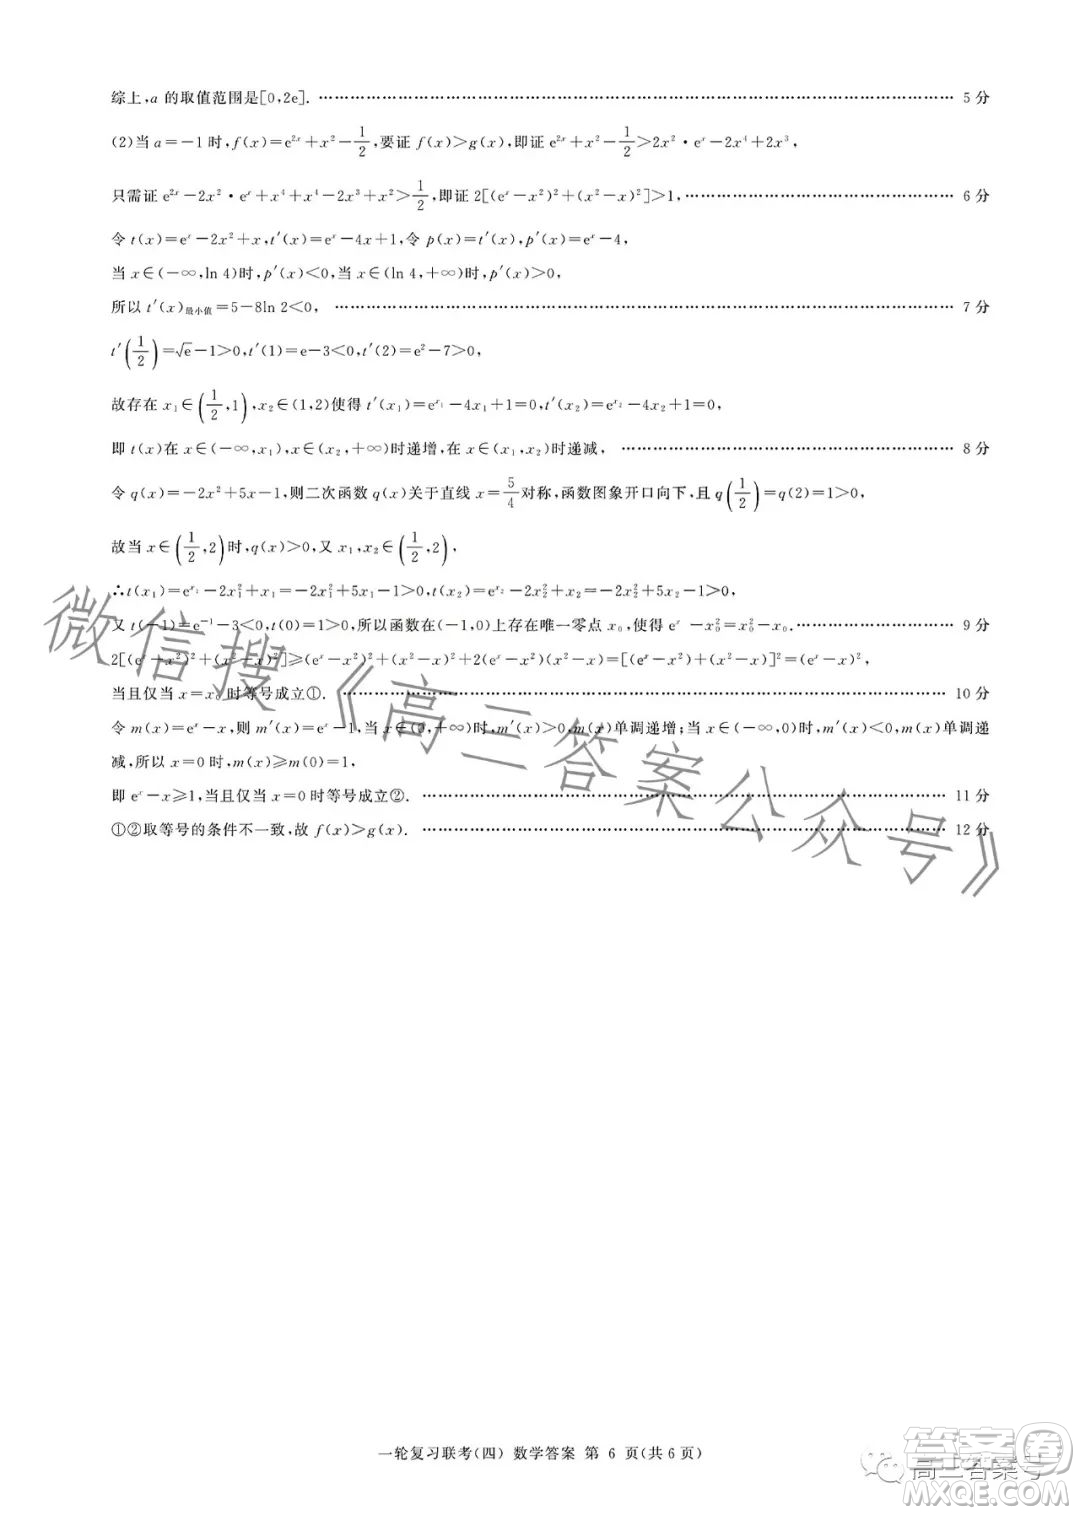 综上,a 的取值范围是[0,2e]. ………… 5 分
(2)当 a=-1 时,f(x)=e^{2x}+x²-1/2,要证 f(x)>g(x),即证 e^{2x}+x²-1/2>2x²·e^x-2x⁴+2x³,
只需证 e^{2x}-2x²·e^x+x⁴+x⁴-2x³+x²>1/2,即证 2[(e^x-x²)²+(x²-x)²]>1, ………… 6 分
令 t(x)=e^x-2x²+x,t′(x)=e^x-4x+1,令 p(x)=t′(x),p′(x)=e^x-4,
当 x∈(-∞,ln 4)时,p′(x)<0,当 x∈(ln 4,+∞)时,p′(x)>0,
所以 t′(x)最小值=5-8ln 2<0, ………… 7 分
t′(1/2)=√e-1>0,t′(1)=e-3<0,t′(2)=e²-7>0,
故存在 x₁∈(1/2,1),x₂∈(1,2)使得 t′(x₁)=e^{x₁}-4x₁+1=0,t′(x₂)=e^{x₂}-4x₂+1=0,
即 t(x)在 x∈(-∞,x₁),x∈(x₂,+∞)时递增,在 x∈(x₁,x₂)时递减, ………… 8 分
令 q(x)=-2x²+5x-1,则二次函数 q(x)关于直线 x=5/4对称,函数图象开口向下,且 q(1/2)=q(2)=1>0,
故当 x∈(1/2,2)时,q(x)>0,又 x₁,x₂∈(1/2,2),
∴t(x₁)=e^{x₁}-2x₁²+x₁=-2x₁²+5x₁-1>0,t(x₂)=e^{x₂}-2x₂²+x₂=-2x₂²+5x₂-1>0,
又 t(-1)=e⁻¹-3<0,t(0)=1>0,所以函数在(-1,0)上存在唯一零点 x₀,使得 e^x-x₀²=x₀²-x₀. ………… 9 分
2[(e^x-x²)²+(x²-x)²]≥(e^x-x²)²+(x²-x)²+2(e^x-x²)(x²-x)=[(e^x-x²)+(x²-x)]²=(e^x-x)²,
当且仅当 x=x₀ 时等号成立①. ………… 10 分
令 m(x)=e^x-x,则 m′(x)=e^x-1,当 x∈(0,+∞)时,m′(x)>0,m(x)单调递增;当 x∈(-∞,0)时,m′(x)<0,m(x)单调递
减,所以 x=0 时,m(x)≥m(0)=1,
即 e^x-x≥1,当且仅当 x=0 时等号成立②. ………… 11 分
①②取等号的条件不一致,故 f(x)>g(x). ………… 12 分
微信搜《高三答案公众号》
一轮复习联考(四) 数学答案 第 6 页(共 6 页)
高三答案号
答案圈
MXQE.COM